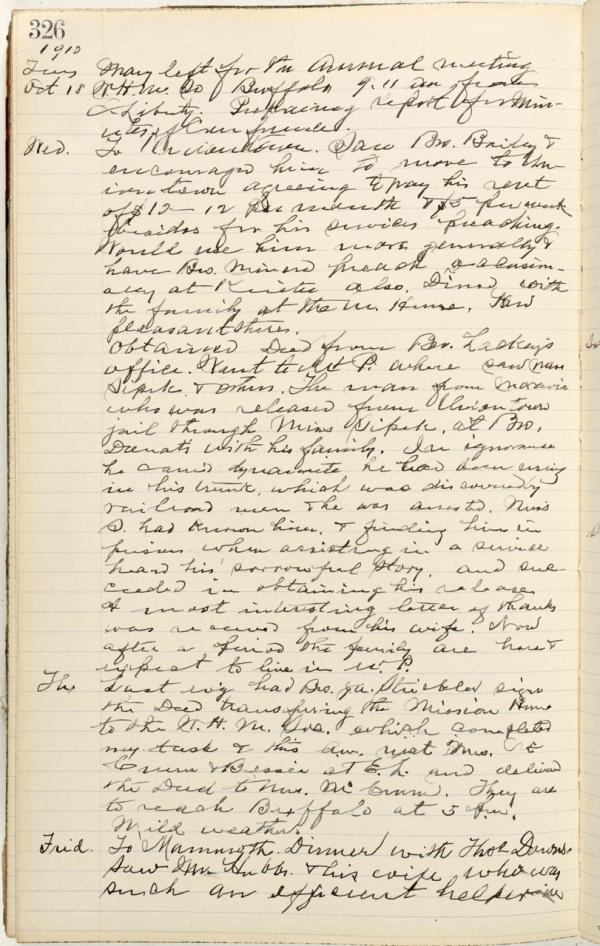 326
1910
Tues Mary left for the Annual meeting
Oct 18 W.H.M. So Buffalo 9.11 am from
E. Liberty. Preparing report of for Min-
utes of Conference.
Wed. To Uniontown. Saw Bro. Bailey &
encouraged him to move to Un-
iontown agreeing to pay his rent
of $12 - 12 per month & $5 per week
besides for his services preaching.
Would use him more generally &
have Bro. Minerd preach occasion-
ally at Keister also. Dined with
the family at the M. Home. Had
pleasant time.
Obtained Deed from Bro. Lackey's
office. Went to Mt P. where saw Miss
Sipek & others. The man from Moravia
who was released from Uniontown
jail through Miss Sipek, at Bro.
with his family. In ignorance
he carried dynamite he had been using
in his trunk, which was discovered by
railroad men & he was arrested. Miss
S. had known him, & finding him in
prison when assisting in a service
heard his sorrowful story, and suc-
ceeded in obtaining his release.
A most interesting letter of thanks
was received from his wife. Now
after a period the family are here &
expect to live in W. P.
Th. Last ev'g had Bro. sign
the Deed transfering the Mission Home
to the W. H. M. Soc. which completed
my task & this a.m. met Mrs.
& Bessie at E. L. and delivered
the Deed to Mrs. Mc Crum. They are
to reach Buffalo at 5 P.m.
Mild weather.
Frid. To Mammoth. Dinner with Thos. Downs.
Saw Mr. Hubbs & his wife, who was
such an efficient helper